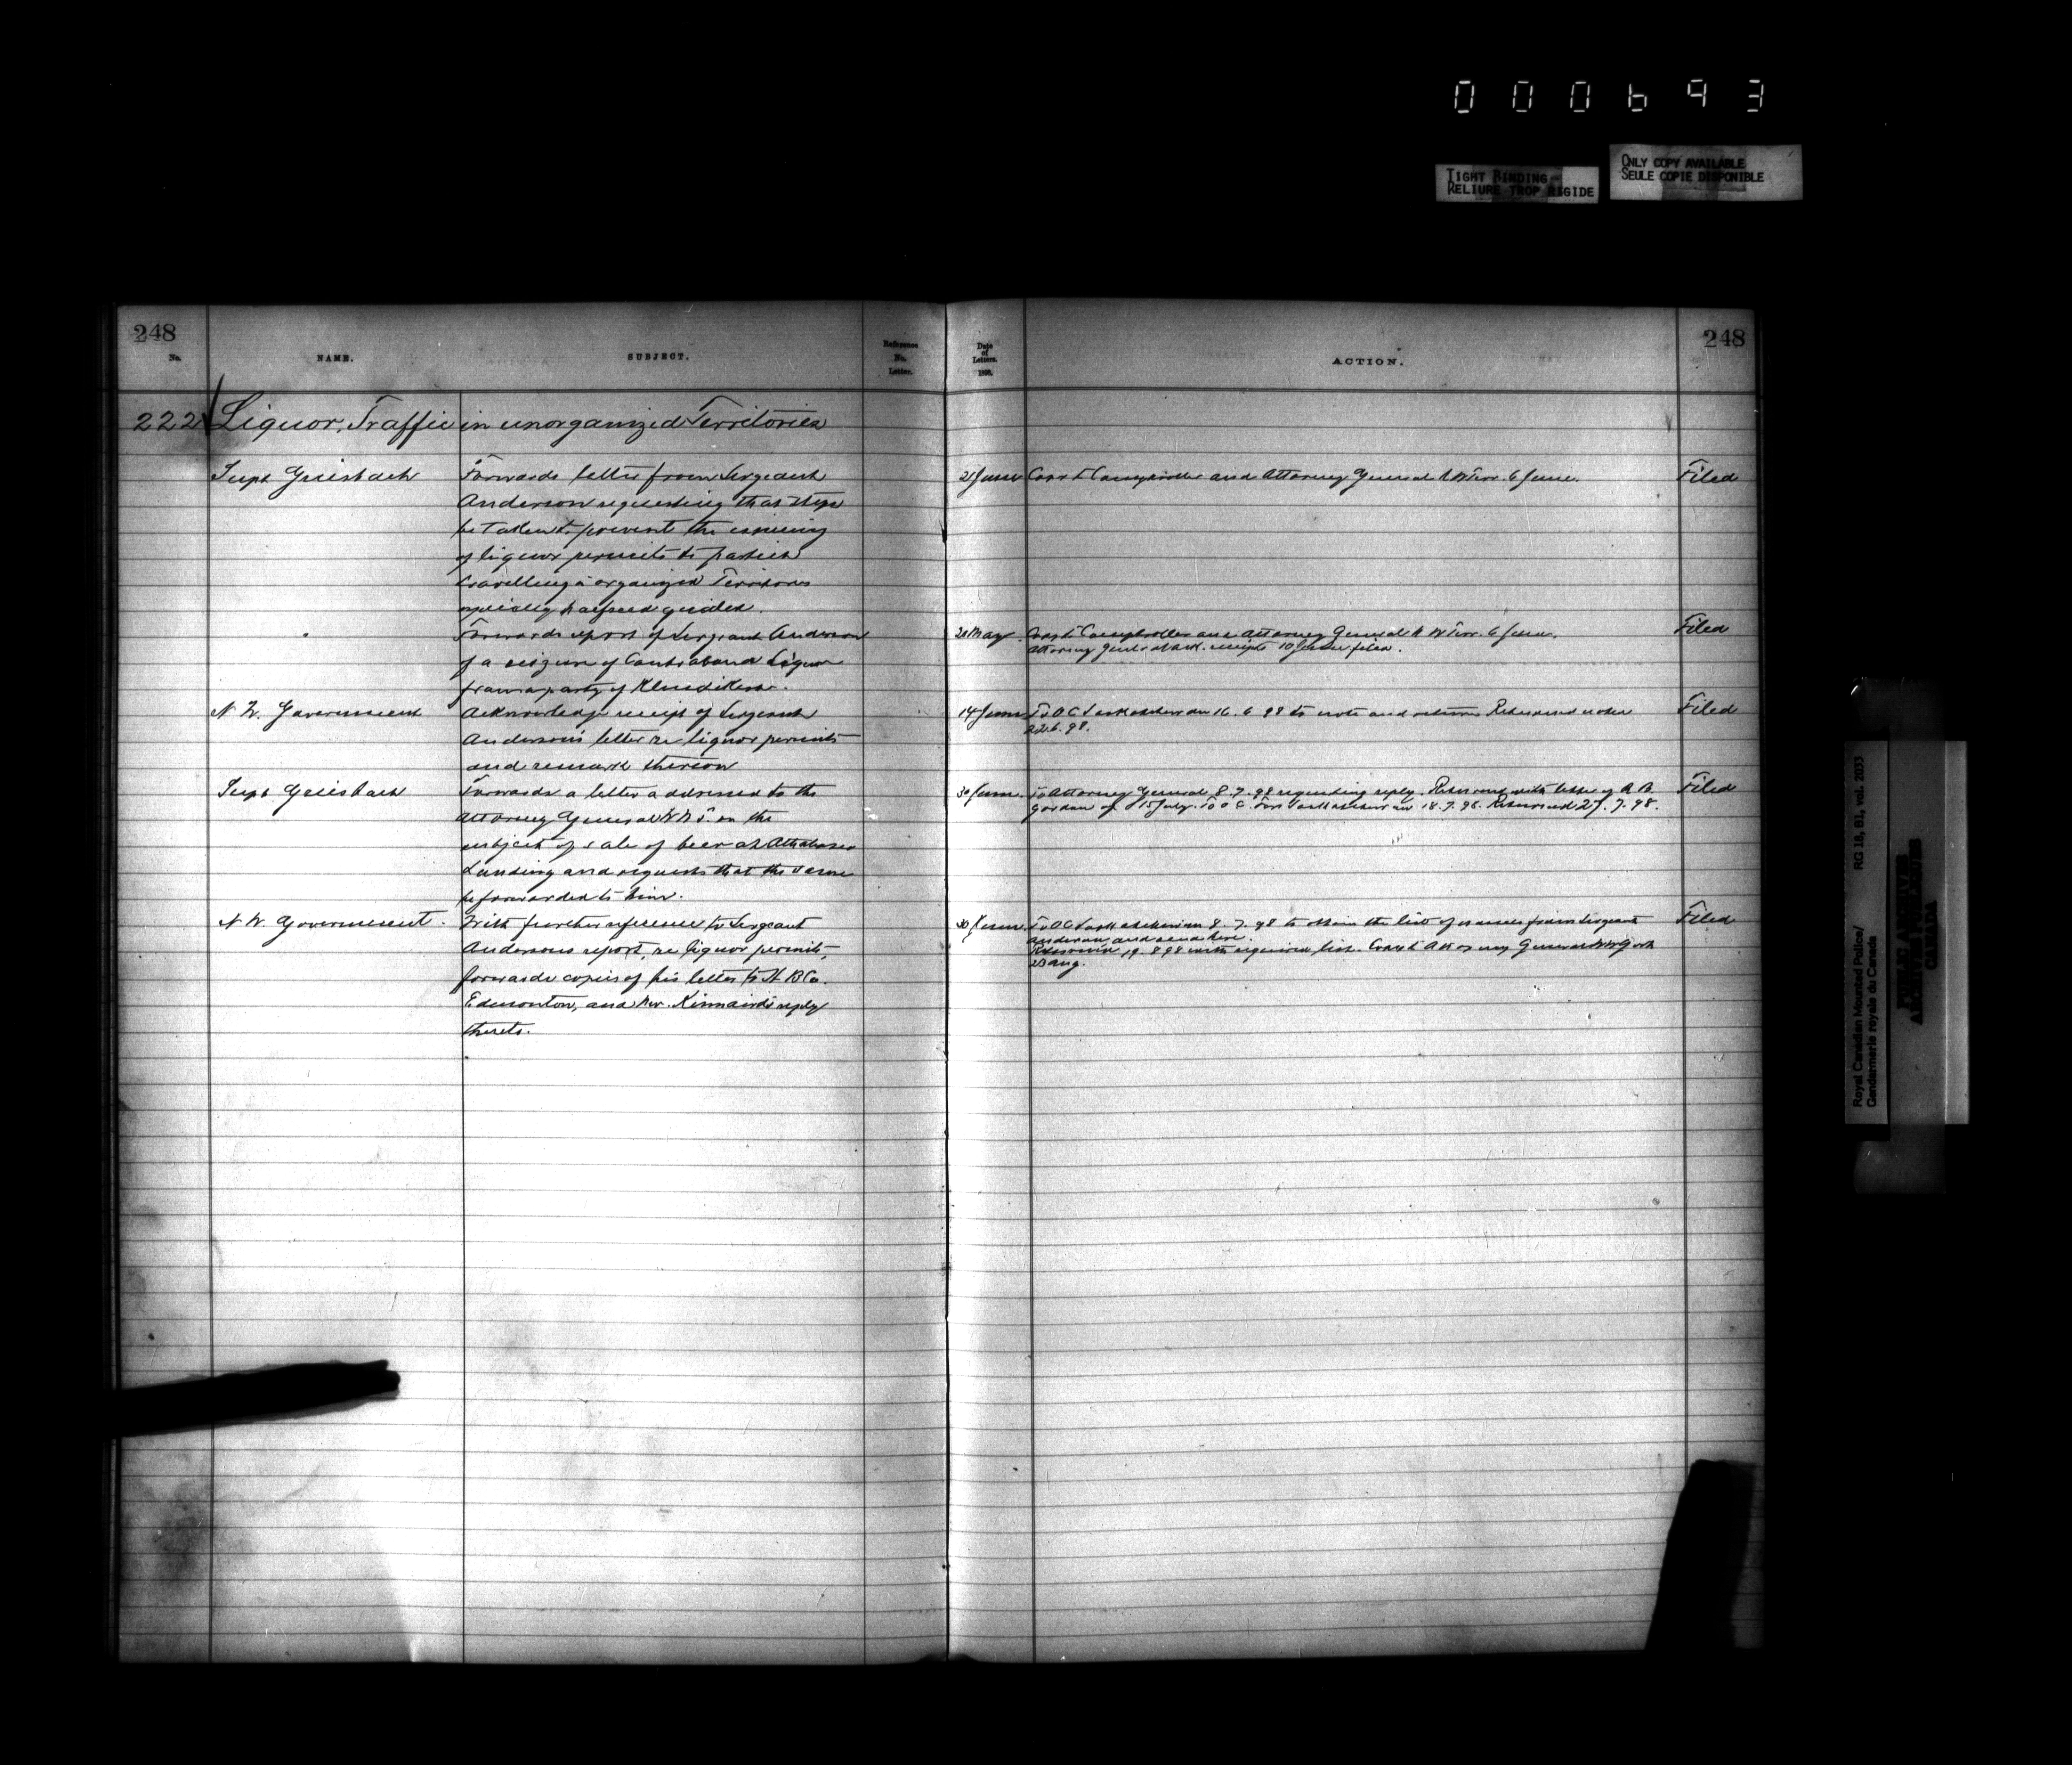 000693
TIGHT BINDING
RELIURE TROP RIGIDE
ONLY COPY AVAILABLE
SEULE COPIE DISPONIBLE
248
No.
NAME.
SUBJECT.
Reference
No.
Letter.
Date
of
Letters.
1898.
ACTION.
248
222 Liquor Traffic in unorganized Territories
Supt Griesbach
Forwards letter from Sergeant
Anderson requesting that steps
be taken to prevent the issuing
of liquor permits to parties
travelling organized Territories
especially halfbreed guides.
2 June
Copy to Comptroller and Attorney General N W Terr. 6 June.
Filed
"
Forwards report of Sergeant Anderson
of a seizure of Contraband Liquor
from a party of Klondikers.
May
Copy to Comptroller and Attorney General N W Terr. 6 June.
Attorney Genl receipt 10 June filed.
Filed
N W. Government
Acknowledge receipt of Sergeant
Anderson's letter re liquor permits
and remark thereon
14 June
To O C Saskatchewan 16. 6 98 to note and return Returned noted
22.6.98.
Filed
Supt Griesbach
Forwards a letter addressed to the
Attorney General N W T. on the
subject of sale of beer at Athabasca
Landing and requests that the same
be forwarded to him.
30 June.
To Attorney General 8.7.98 requesting reply. Returned with letter of
Gordon of 15 July. To O C Fort Saskatchewan 18.7.98. Returned 27.7.98.
Filed
N W. Government.
With further reference to Sergeant
Andersons report, re liquor permits,
forwards copies of his letter to H B Co.
Edmonton, and Mr. Kinnaird's reply
thereto.
30 June
To O C Saskatchewan 8.7.98 to obtain the list of names from Sergeant
Anderson and send here.
Returned 19.8 98 with required list. Copy to Attorney General
23 Aug.
Filed
Royal Canadian Mounted Police/
Gendarmerie royale du Canada
RG 18, B1, vol. 2033
PUBLIC ARCHIVES
ARCHIVES PUBLIQUES
CANADA